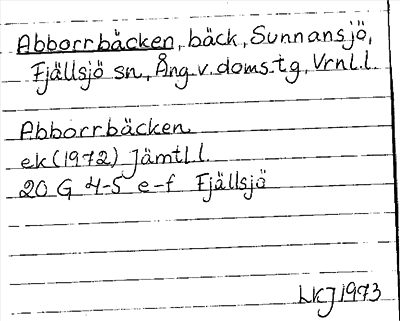 Abborrbäcken, bäck, Sunnansjö,
Fjällsjö sn, Ång. v. doms.tg, Vrnl.l
Abborrbäcken
ek (1972) Jämtl.l.
20 G 4-5 e-f Fjällsjö
LKJ 1973